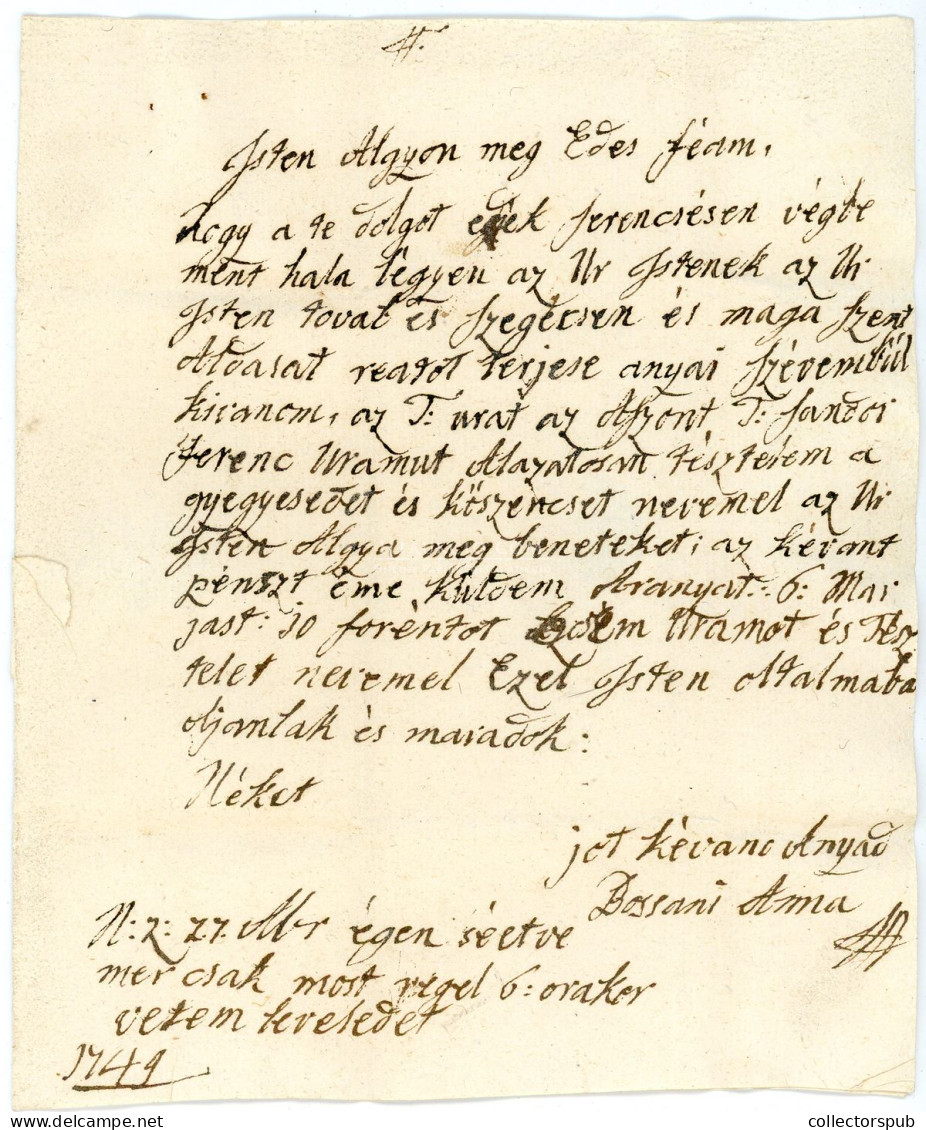 Isten Algyon meg Edes féam,
hogy a te dolgot ferencsésen végbe
ment hala légyen az Ur Istenek az Ur
Isten tovab és szegécsen és maga szent
Aldasat reatot terjese anyai szévembül
kivanom, az T: urat az Aszont T: sandor
ferenc Uramut Alazatosan tésztelem a
gyegyesedet és köszencset nevemel az Ur
Isten Algya meg beneteket; az kévant
pénszt éme küldem Aranyat: 6: Mar
jast: 10 foréntot Uramot és Tész
telet nevemel Ezel Isten oltalmaba
aljanlak és maradok:
Néket
jot kévano Anyad
Dossani Anna
N: Z: 27. Mbr égen séetve
mer csak most regel 6: orakor
vetem leveledet
1749
collectorspub